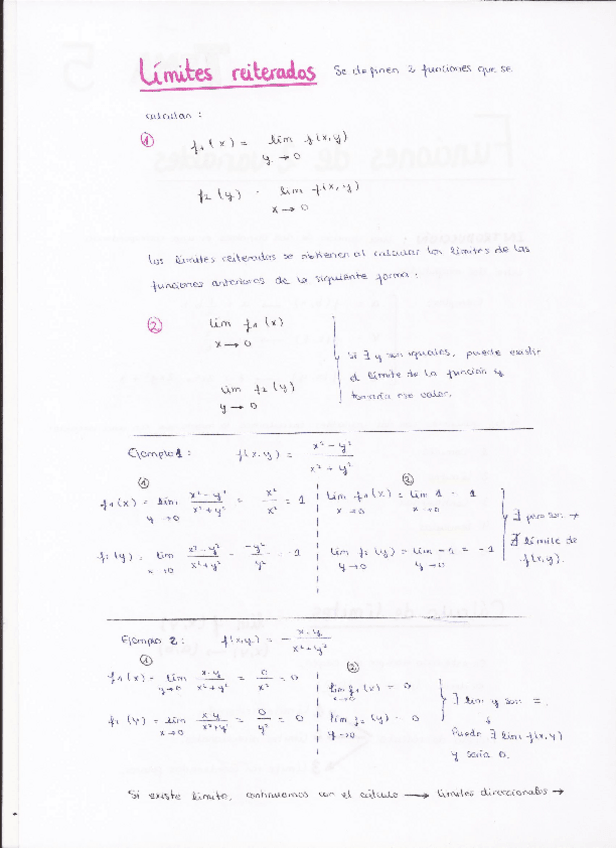 Límites reiterados Se definen 2 funciones que se
calculan :
① f₁(x) = lim f(x,y)
y → 0
f₂(y) = lim f(x,y)
x → 0
Los límites reiterados se obtienen al calcular los límites de las
funciones anteriores de la siguiente forma :
② lim f₁(x)
x → 0
Si ∃ y son iguales, puede existir
el límite de la función y
tomaría ese valor.
lim f₂(y)
y → 0
Ejemplo 1 : f(x,y) = x² - y² / x² + y²
①
f₁(x) = lim x² - y² / x² + y² = x² / x² = 1
y → 0
f₂(y) = lim x² - y² / x² + y² = -y² / y² = -1
x → 0
②
lim f₁(x) = lim 1 = 1
x → 0 x → 0
lim f₂(y) = lim -1 = -1
y → 0 y → 0
∃ pero son →
∄ límite de
f(x,y).
Ejemplo 2 : f(x,y) = - x·y / x² + y²
①
f₁(x) = lim x·y / x² + y² = 0 / x² = 0
y → 0
f₂(y) = lim x·y / x² + y² = 0 / y² = 0
x → 0
②
lim f₁(x) = 0
x → 0
lim f₂(y) = 0
y → 0
∃ lim y son =.
↓
Puede ∃ lim f(x,y)
y sería 0.
Si existe límite, continuamos con el cálculo → límites direccionales →